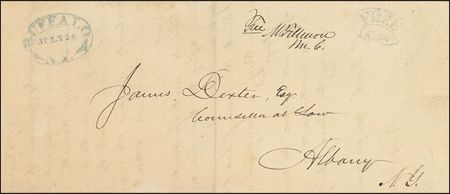 BUFFALO
JULY 26
N.Y.
Free M Fillmore
M.C.
FREE
James Dexter, Esq
Counsellor at Law
Albany
N.Y.